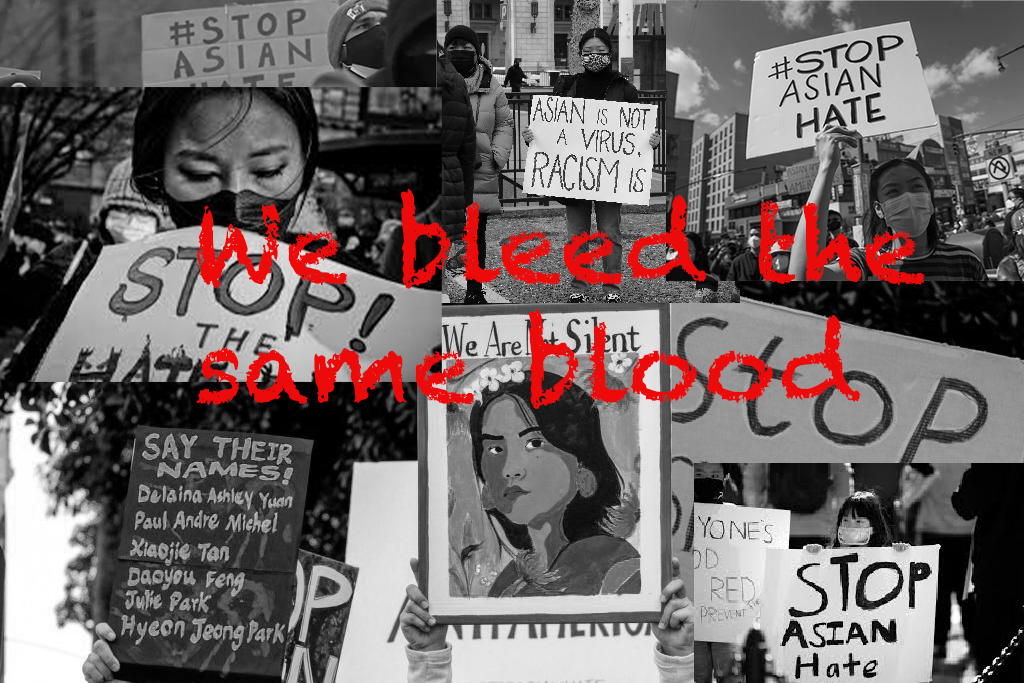 #STOP
ASIAN
HATE
ASIAN IS NOT
A VIRUS.
RACISM IS
#STOP
ASIAN
HATE
We bleed the
same blood
STOP!
THE
We Are Not Silent
STOP
SAY THEIR
NAMES!
Delaina Ashley Yuan
Paul Andre Michel
Xiaojie Tan
Daoyou Feng
Julie Park
Hyeon Jeong Park
YONE'S
OD
RED
PREVENT
STOP
ASIAN
Hate